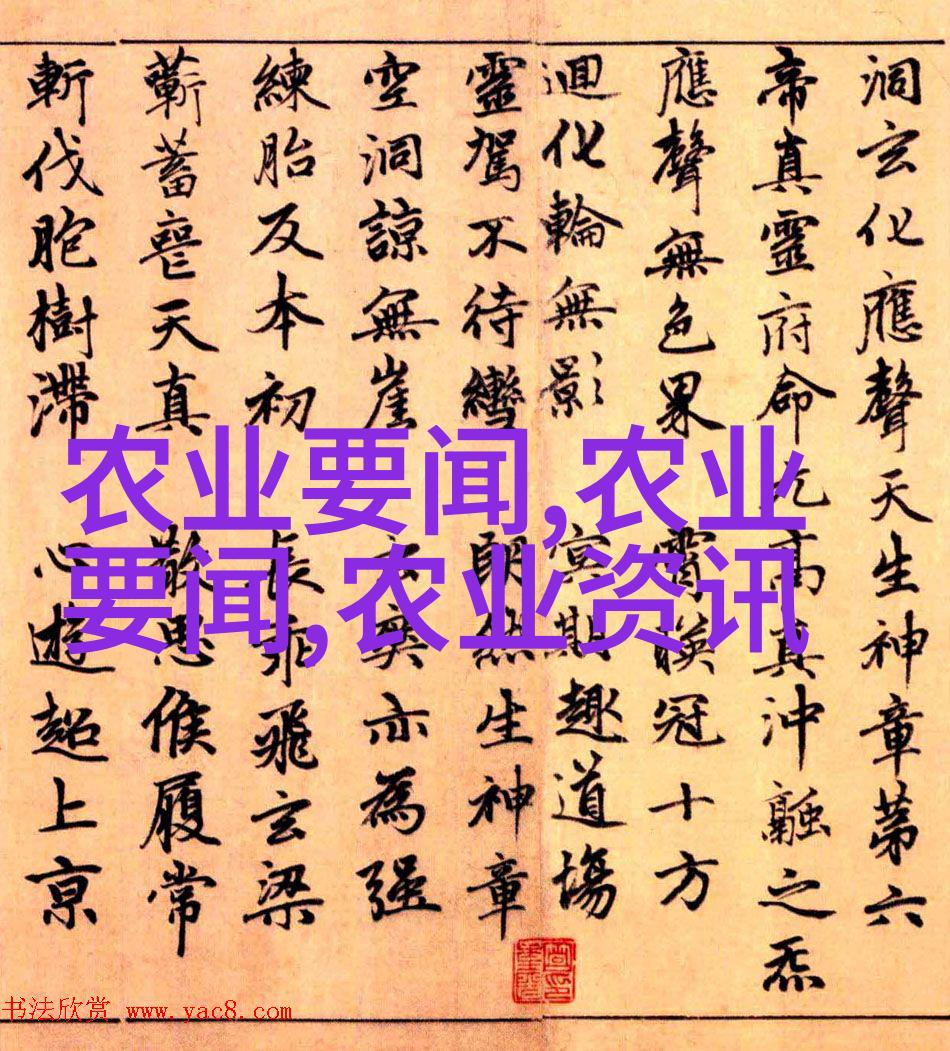 洞玄化應聲天生神章苐六
帝真靈府命元高真沖融之炁
應聲無色界 霄映冠十方
迴化輪無影 冥期趣道場
靈駕不待轡 朗然生神章
空洞諒無崖 玄奥亦為强
練胎反本初 長乖飛玄梁
蘄蓄喪天真 散思候履常
斬伐胞樹滯 心遊超上京
农业要闻,农业
要闻,农业资讯
书法欣赏 www.yac8.com